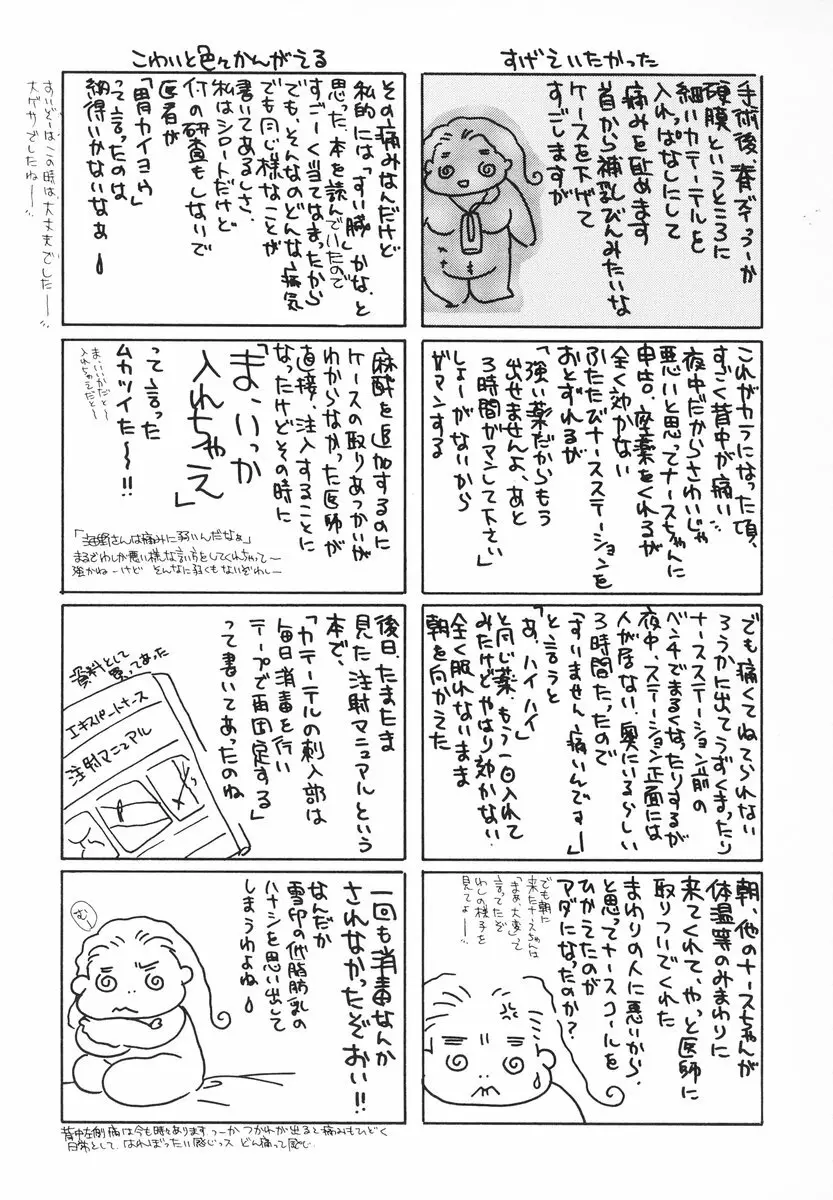 すげえいたかった
手術後、脊ずいっつーか
硬膜というところに
細いカテーテルを
入れっぱなしにして
痛みを止めます
首から補乳びんみたいな
ケースを下げて
すごしますが
これがカラになった頃、
すごく背中が痛い
夜中だからさわいじゃ
悪いと思ってナースちゃんに
申告。座薬をくれるが
全く効かない
ふたたびナースステーションを
おとずれるが
「強い薬だからもう
出せませんよ、あと
3時間ガマンして下さい」
しょーがないから
ガマンする
でも痛くてねてられない
ろうかに出てうずくまったり
ナースステーション前の
ベンチでまるくなったりするが
夜中、ステーション正面には
人が居ない、奥にいるらしい
3時間たったので
「すいません、痛いんですー」
と言うと
「あ、ハイハイ」
と同じ薬、もう一回入れて
みたけどやはり効かない、
全く眠れないまま
朝を向かえた
朝、他のナースちゃんが
体温等のみまわりに
来てくれて、やっと医師に
取りついでくれた
まわりの人に悪いから、
と思ってナースコールを
ひかえたのが
アダになったのか？
でも朝に
来たナースちゃんは
「まぁ、大変」って
言ってたぞ
わしの様子を
見てよー
こわいと色々かんがえる
その痛みなんだけど
私的には「すい臓」かな、と
思った、本を読んでいたので
すごーく当てはまったから
でも、そんなのどんな病気
でも同じ様なことが
書いてあるしさ、
私はシロートだけど
何の研査もしないで
医者が
「胃カイヨウ」
って言ったのは
納得いかないなぁ
すいぞーはこの時は、大丈夫でしたー
大ゲサでしたねー
麻酔を追加するのに
ケースの取りあつかいが
わからなかった医師が
直接、注入することに
なったけどその時に
「ま、いっか
入れちゃえ」
って言った
ムカツイた〜!!
ま、いいかだと〜
入れちゃえだと〜
さんは痛みに弱いんだなぁ」
まるでわしが悪い様な言い方をしてくれちゃって〜
強かねーけど そんなに弱くもないぞわし〜
後日、たまたま
見た注射マニュアルという
本で、
「カテーテルの刺入部は
毎日消毒を行い
テープで再固定する」
って書いてあったのね
資料として
買ってあった
エキスパートナース
注射マニュアル
一回も消毒なんか
されなかったぞおい!!
なんだか
雪印の低脂肪乳の
ハナシを思い出して
しまうわよね
むー
背中左側痛は今も時々あります、つーか つかれが出ると痛みもひどく
日常として、はれぼったい感じっス どん痛って感じ